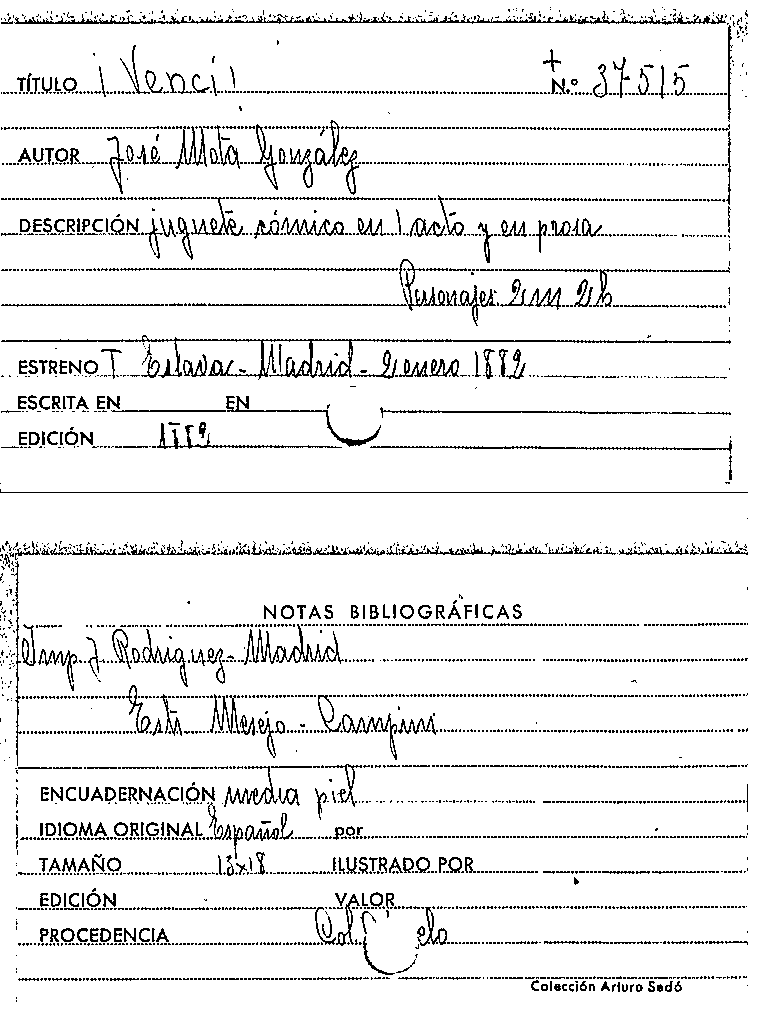 TÍTULO ¡Vencí! + N.º 37515
AUTOR José Mota González
DESCRIPCIÓN juguete cómico en 1 acto y en prosa
Personajes 2m 2h
ESTRENO T Eslava - Madrid - 2 enero 1882
ESCRITA EN EN
EDICIÓN 1882
NOTAS BIBLIOGRÁFICAS
Imp J Rodriguez - Madrid
Estr Mesejo - Campini
ENCUADERNACIÓN media piel
IDIOMA ORIGINAL Español por
TAMAÑO 13x18 ILUSTRADO POR
EDICIÓN VALOR
PROCEDENCIA Col.
Colección Arturo Sedó